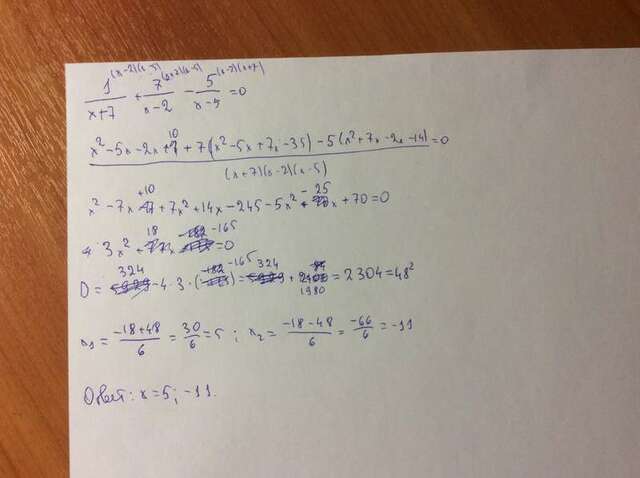 1^(x-2)(x-5)/x+7 + 7^(x+7)(x-5)/x-2 - 5^(x-2)(x+7)/x-5 = 0
x²-5x-2x+10+7(x²-5x+7x-35)-5(x²+7x-2x-14)/(x+7)(x-2)(x-5) = 0
x²-7x+10+7x²+14x-245-5x²-25x+70=0
3x²+18x-165=0
D= 324-4·3·(-165)=324+1980=2304=48²
x₁= -18+48/6 = 30/6 =5; x₂= -18-48/6 = -66/6 = -11
Ответ: x=5; -11.